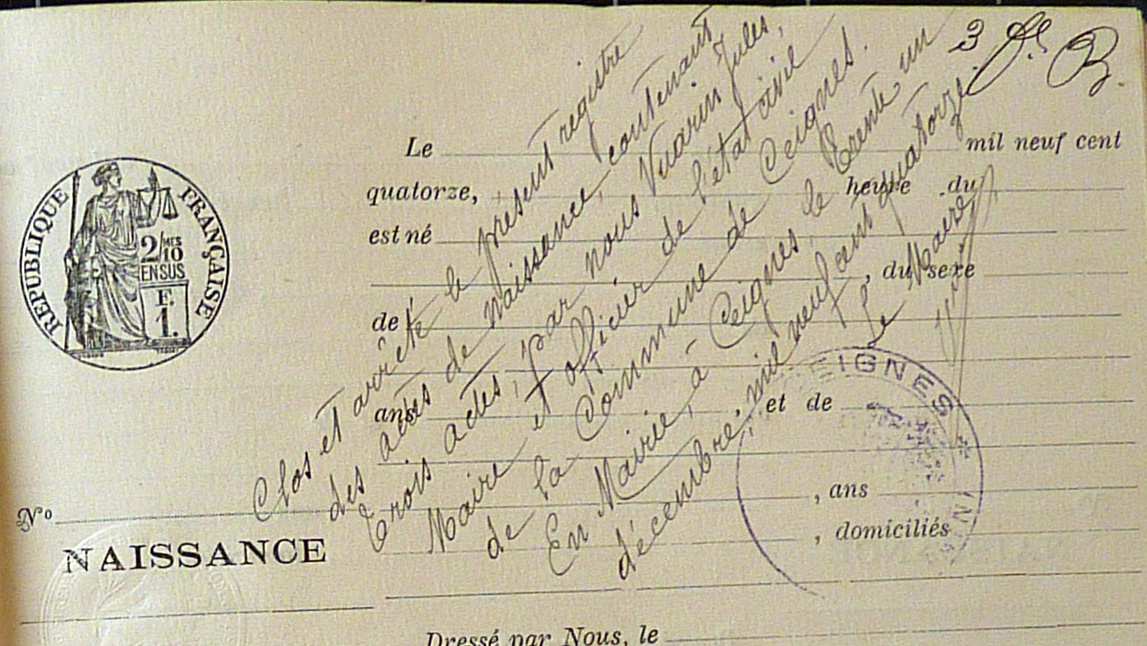 3 f. B.
RÉPUBLIQUE FRANÇAISE
2/MES
10
EN SUS
F.
1.
Le mil neuf cent
quatorze, heure du
est né
, du sexe
de
ans et de
, ans
, domiciliés
Nº
NAISSANCE
Dressé par Nous, le
Clos et arrêté le présent registre
des actes de naissance, contenant
trois actes, par nous Vuarin Jules,
Maire et officier de l'état civil
de la Commune de Ceignes.
En Mairie, à Ceignes, le trente un
décembre, mil neuf cent quatorze.
Le Maire
CEIGNES